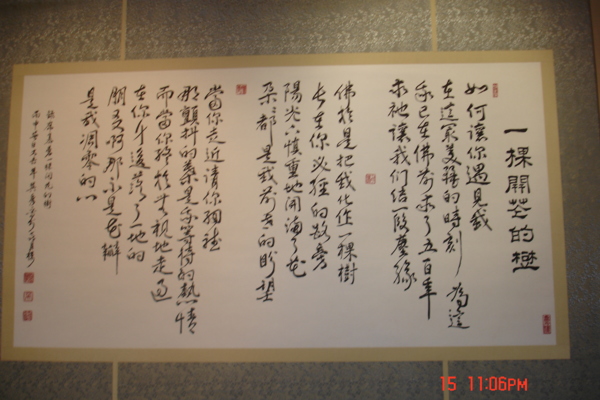 一棵開花的樹
如何讓你遇見我
在這最美麗的時刻 為這
我已在佛前求了五百年
求祂讓我們結一段塵緣
佛於是把我化作一棵樹
長在你必經的路旁
陽光下慎重地開滿了花
朵朵都是我前世的盼望
當你走近請你細聽
那顫抖的葉是我等待的熱情
而當你終於無視地走過
在你身後落了一地的
朋友啊那不是花瓣
是我凋零的心
錄席慕蓉一棵開花的樹
15 11:06PM